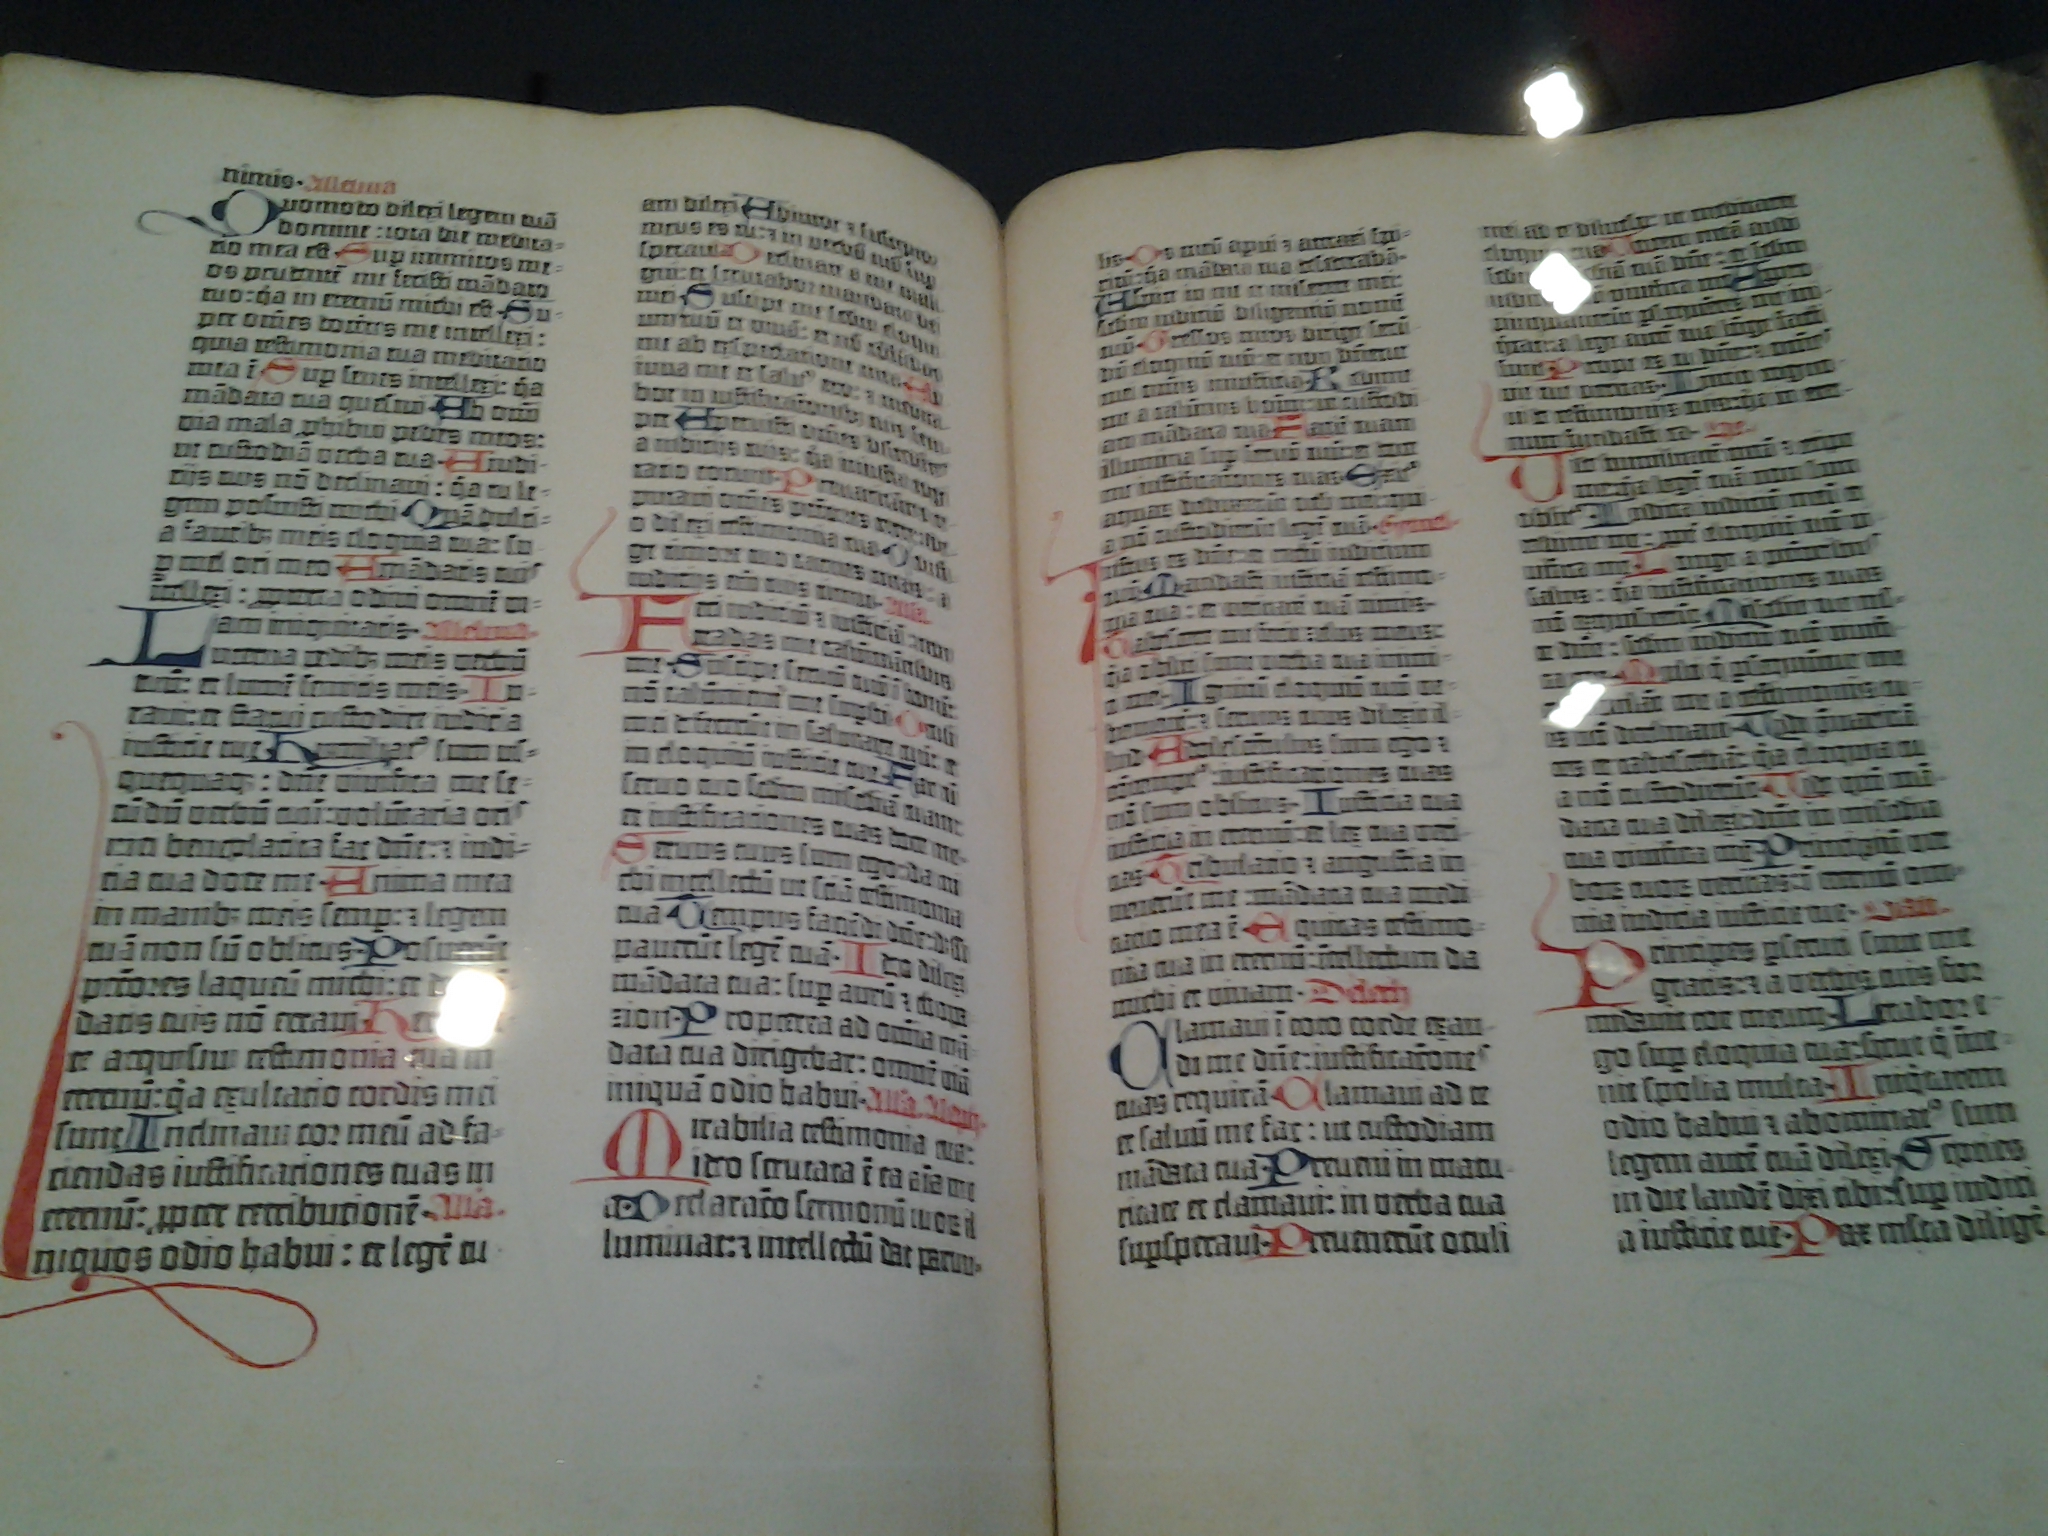 nimis. Alleluia
Quomodo dilexi legem tuā
domine : tota die medita=
tio mea est. Sup inimicos me=
os prudentē me fecisti mādato
tuo: q̄a in eternū michi est. Su=
per omēs docētes me intellexi :
quia testimonia tua meditatio
mea ē. Sup senes intellexi: q̄a
mādata tua quesiui. Ab omī
via mala phibui pedes meos:
ut custodiā verba tua. A iudi=
cijs tuis nō declinaui : q̄a tu le=
gem posuisti michi. Quā dulci=
a faucibꝫ meis eloquia tua: su=
p mel ori meo. A mādatis tuis
ītellexi : ꝓpterea odiui omnē vi=
am iniquitatis. Alleluia.
Lucerna pedibꝫ meis verbū
tuū: et lumē semitis meis. Iu=
raui: et statui custodire iudicia
iusticie tue. Humiliatꝰ sum us=
quequaqꝫ : dn̄e vivifica me se=
cūdū verbū tuū: volūtaria oris
mei beneplacita fac dn̄e: ⁊ iudi=
cia tua doce me. Anima mea
in manibꝫ meis semp: ⁊ legem
tuā non sū oblitus. Posuerūt
pctōres laqueū michi: et de
datis tuis nō erraui. He
te acquisiui testimonia tua in
eternū: q̄a exultatio cordis mei
sunt. Inclinaui cor meū ad fa=
ciendas iustificationes tuas in
eternū: ꝓpter retributionē. Alla.
Iniquos odio habui : et legē tu
am dilexi. Adiutor ⁊ susceptor
meus es tu: ⁊ in verbū tuū sup
speraui. Declinate a me mali=
gni: et scrutabor mandata dei
mei. Suscipe me scdm eloqui
um tuū et viuā: et nō cōfūdas
me ab expectatione mea. Ad
iuua me et saluꝰ ero: ⁊ medita
bor in iustificationibꝫ tuis sem
per
a iudicijs tuis: q̄a iniusta cogi
tatio eorum. P
putaui omēs pctōres terre: ide
o dilexi testimonia tua. Confi
ge timore tuo carnes meas: a
iudicijs eīm tuis timui. Alla.
Feci iudiciū ⁊ iusticiā: non
tradas me calūniātibus
me. Suscipe seruū tuū ī bonū:
nō calūnient me supbi. Oculi
mei defecerūt in salutare tuū: et
in eloquiū iusticie tue. Fac cū
seruo tuo scdm misc̄diā tuam:
et iustificationes tuas doce me.
Seruus tuus sum ego: da mi
chi intellectū ut sciā testimonia
tua. Tempus faciēdi dn̄e: dissi
pauerūt legē tuā. Ideo dilexi
mādata tua: sup aurū ⁊ thopa
zion. Propterea ad omīa mā
data tua dirigebar: omnē viā
iniquā odio habui. Alla. Aleph.
Mirabilia testimonia tua:
ideo scrutata ē ea aīa me
a. Declaratio sermonū tuoꝝ il
luminat: ⁊ intellectū dat paruu=
lis. Os meū apui ⁊ attraxi spi=
ritū: q̄a mādata tua desiderabā.
Aspice in me et miserere mei:
scdm iudiciū diligentiū nomē
tuū. Gressus meos dirige scdū
dū eloquiū tuū: et non dn̄etur
mei omīs iniusticia. Redime
me a calūnijs hoīm: ut custodi
am mādata tua. Faciē tuam
illumina sup seruū tuū: et doce
me iustificationes tuas. Exitꝰ
aquarū deduxerūt oculi mei: qui
a nō custodierūt legē tuā.
Iustus es dn̄e: et rectū iudicium
tuū. Mandasti iusticiā testimo=
nia tua : et veritatē tuā nimis.
Tabescere me fecit zelus meus:
q̄a obliti sunt verba tua inimi=
ci mei. Ignitū eloquiū tuū ve=
hementer: ⁊ seruus tuus dilexit il=
lud. Adolescētulus sum ego ⁊
cōtemptꝰ: iustificationes tuas
nō sum oblitus. Iusticia tua
iusticia in eternū: et lex tua veri=
tas. Tribulatio ⁊ angustia in
uenerūt me : mādata tua medi
tatio mea ē. Equitas testimo=
nia tua in eternū: ītellectum da
michi et viuam. Deleth
Clamaui ī toto corde exau
di me dn̄e: iustificationes
tuas requirā. Clamaui ad te
et saluū me fac : ut custodiam
mādata tua. Preueni in matu
ritate et clamaui: in verba tua
supsperaui. Preuenerūt oculi
mei ad te diluculo: ut meditarer
eloquia tua. Vocem meā audi
ppinquauerūt psequētes me ini=
quitati: a lege autē tua lōge facti
sunt. Prope es tu dn̄e: ⁊ omēs
vie tue veritas. Initio cognoui
de testimonijs tuis: q̄a in eter=
num fundasti ea. Res.
Vide humilitatē meā ⁊ eripe
me: q̄a legē tuā non sum
oblitꝰ. Iudica iudiciū meū et
redime me: ppt eloquiū tuū vi
uifica me. Longe a pctōribus
salus : q̄a iustificationes tuas
nō exquisierūt. Misc̄die tue mul=
te dn̄e : scdm iudiciū tuū viuifi
ca me. Multi q̄ psequūtur me
tribulāt me a testimonijs tu=
is nō declinaui. Vidi p̄uaricā
tes et tabescebā: q̄a eloquia tu
a nō custodierūt. Vide q̄m mā=
data tua dilexi: dn̄e in misc̄dia
tua viuifica me. Principiū ver
boꝝ tuoꝝ veritas: ī eternū om=
nia iudicia iusticie tue.
Principes psecuti sunt me
gratis: ⁊ a verbis tuis for
midauit cor meum. Letabor e=
go sup eloquia tua: sicut q̄ īue=
nit spolia multa. Iniq̄tatem
odio habui ⁊ abominatꝰ sum
legem autē tuā dilexi. Septies
in die laudē dixi tibi: sup iudici
a iusticie tue. Pax multa diligē